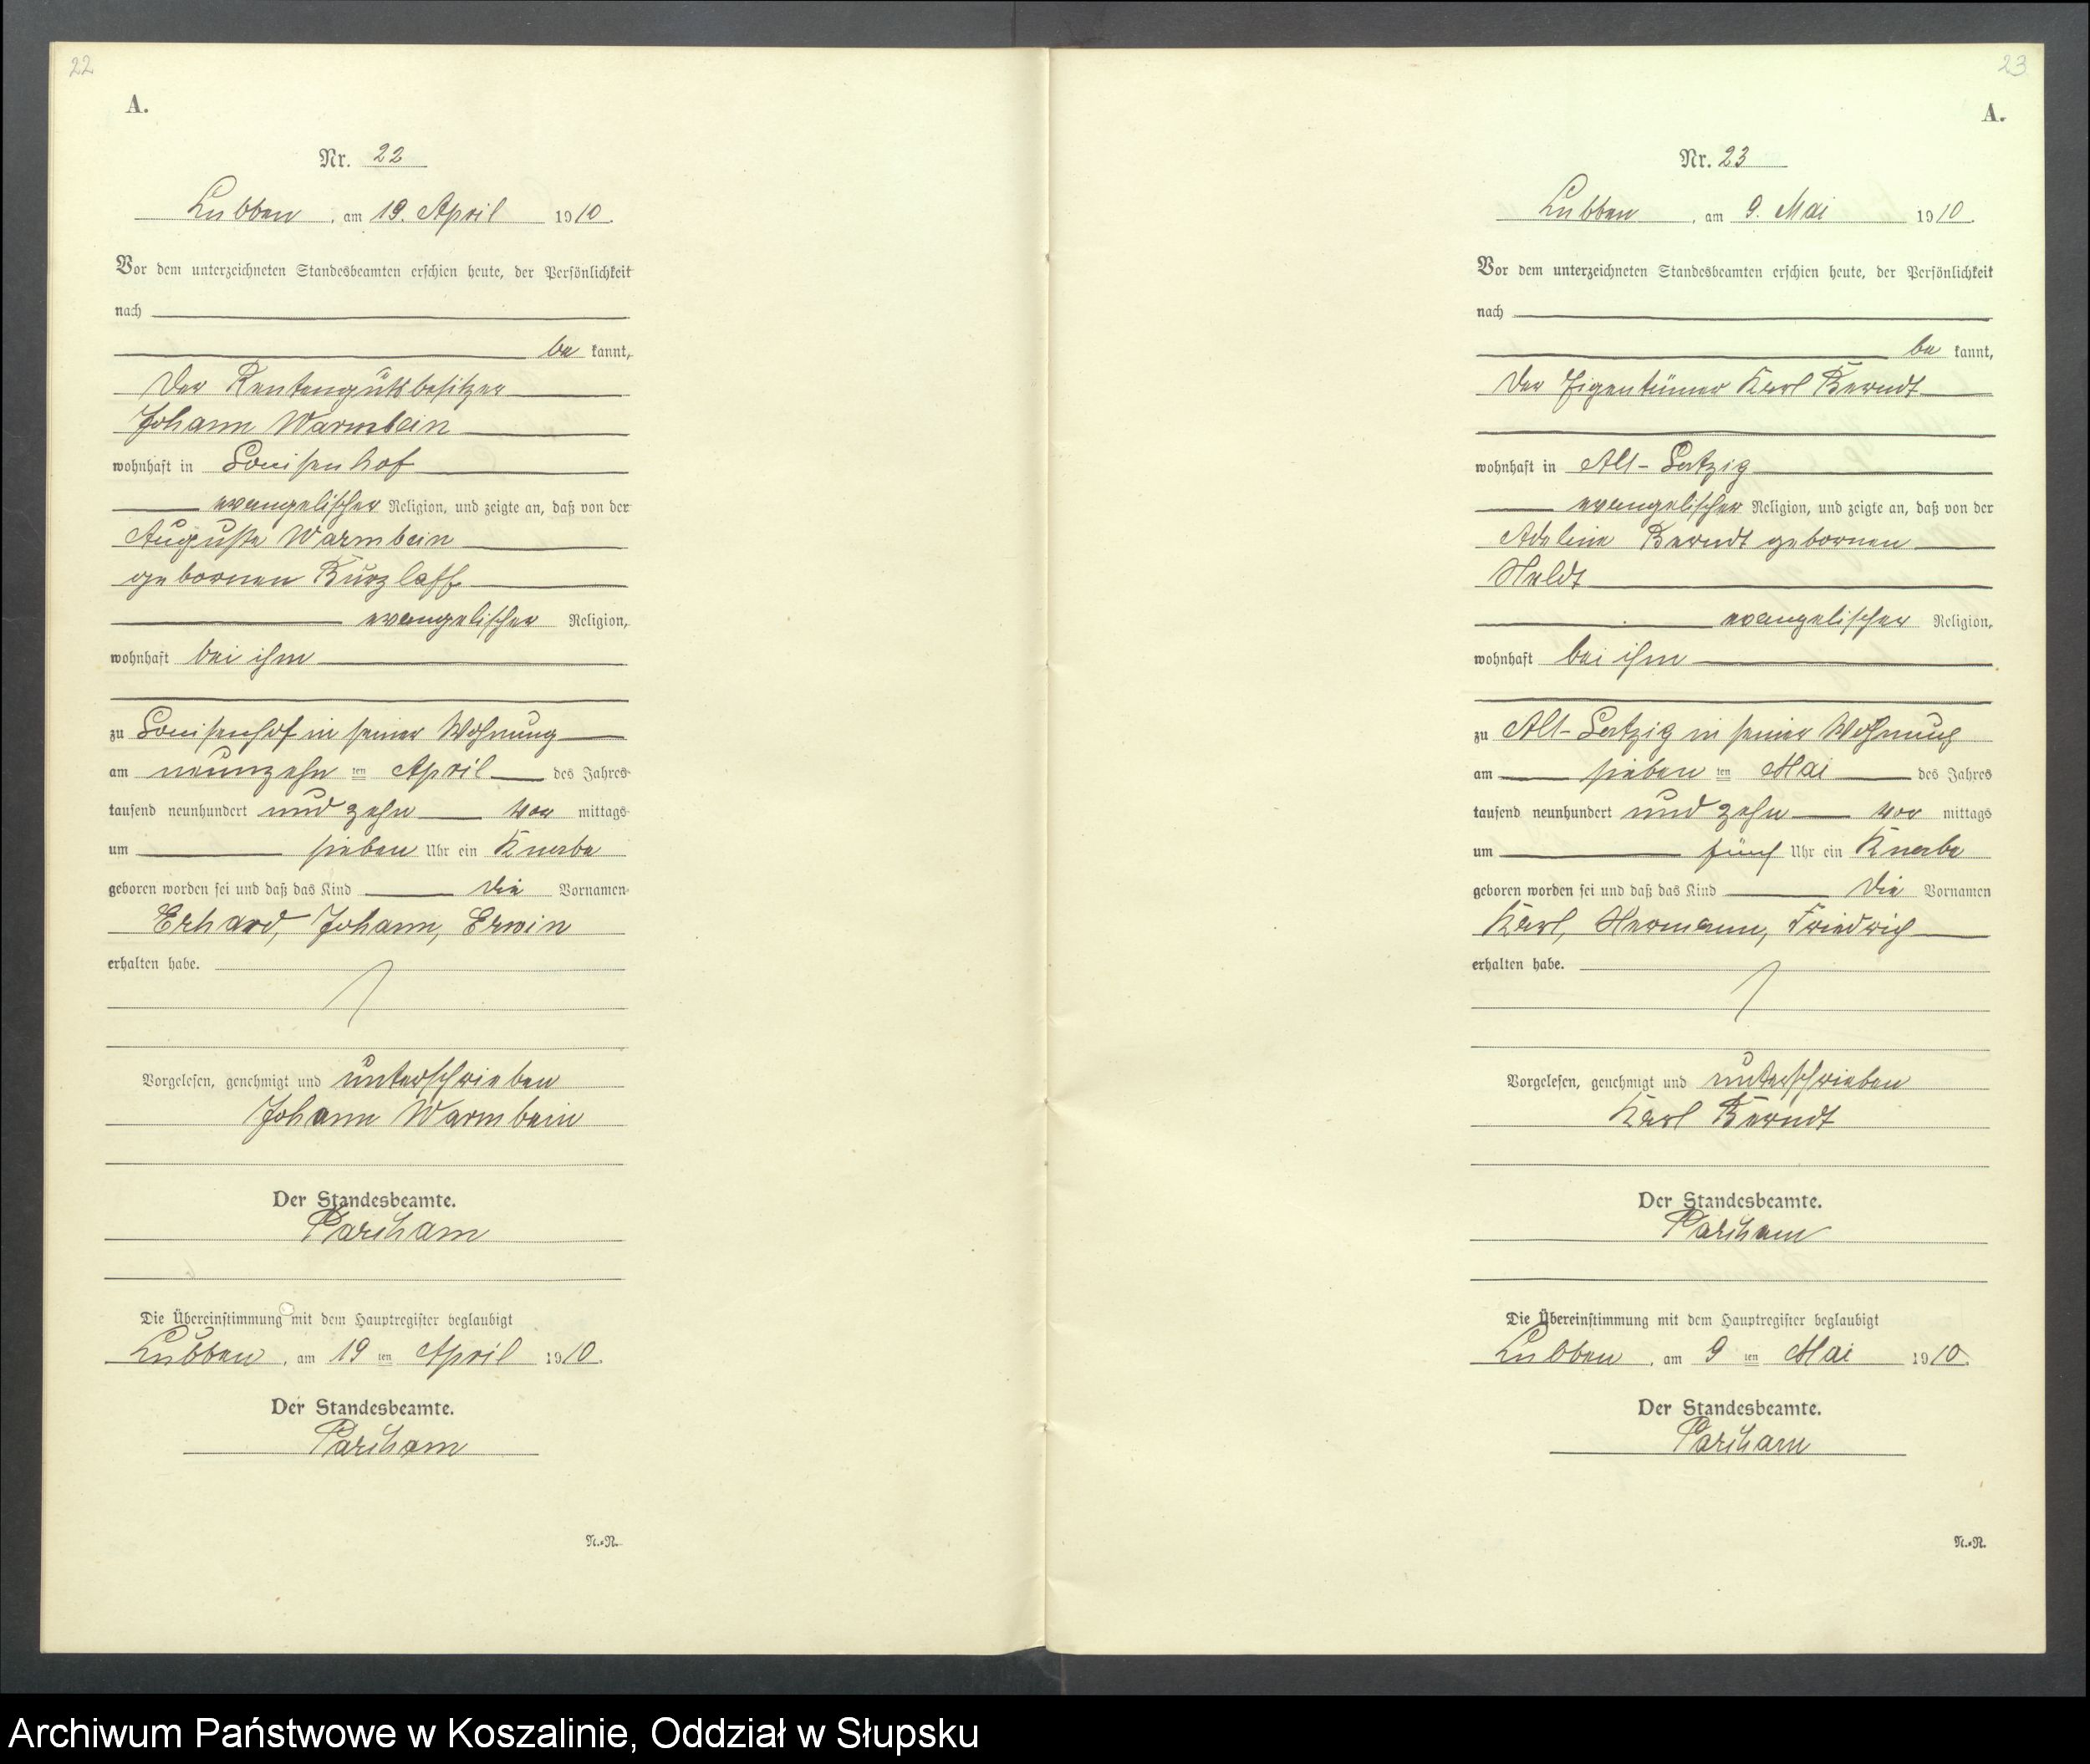 22
A.
Nr. 22
Lubben, am 19. April 1910.
Vor dem unterzeichneten Standesbeamten erschien heute, der Persönlichkeit
nach
be kannt,
der Rentengutsbesitzer
Johann Warmbein
wohnhaft in Louisenhof
evangelischer Religion, und zeigte an, daß von der
Auguste Warmbein
gebornen Kurzlaff
evangelischer Religion,
wohnhaft bei ihm
zu Louisenhof in seiner Wohnung
am neunzehn ten April des Jahres
tausend neunhundert und zehn vor mittags
um sieben Uhr ein Knabe
geboren worden sei und daß das Kind die Vornamen
Erhard, Johann, Erwin
erhalten habe.
Vorgelesen, genehmigt und unterschrieben
Johann Warmbein
Der Standesbeamte.
Die Übereinstimmung mit dem Hauptregister beglaubigt
Lubben, am 19 ten April 1910.
Der Standesbeamte.
N.-R.
23
A.
Nr. 23
Lubben, am 9. Mai 1910.
Vor dem unterzeichneten Standesbeamten erschien heute, der Persönlichkeit
nach
be kannt,
der Eigentümer Karl Berndt
wohnhaft in Alt-Latzig
evangelischer Religion, und zeigte an, daß von der
Adeline Berndt gebornen
Heldt
evangelischer Religion,
wohnhaft bei ihm
zu Alt-Latzig in seiner Wohnung
am sieben ten Mai des Jahres
tausend neunhundert und zehn vor mittags
um fünf Uhr ein Knabe
geboren worden sei und daß das Kind die Vornamen
Karl, Hermann, Friedrich
erhalten habe.
Vorgelesen, genehmigt und unterschrieben
Karl Berndt
Der Standesbeamte.
Die Übereinstimmung mit dem Hauptregister beglaubigt
Lubben, am 9 ten Mai 1910.
Der Standesbeamte.
N.-R.
Archiwum Państwowe w Koszalinie, Oddział w Słupsku